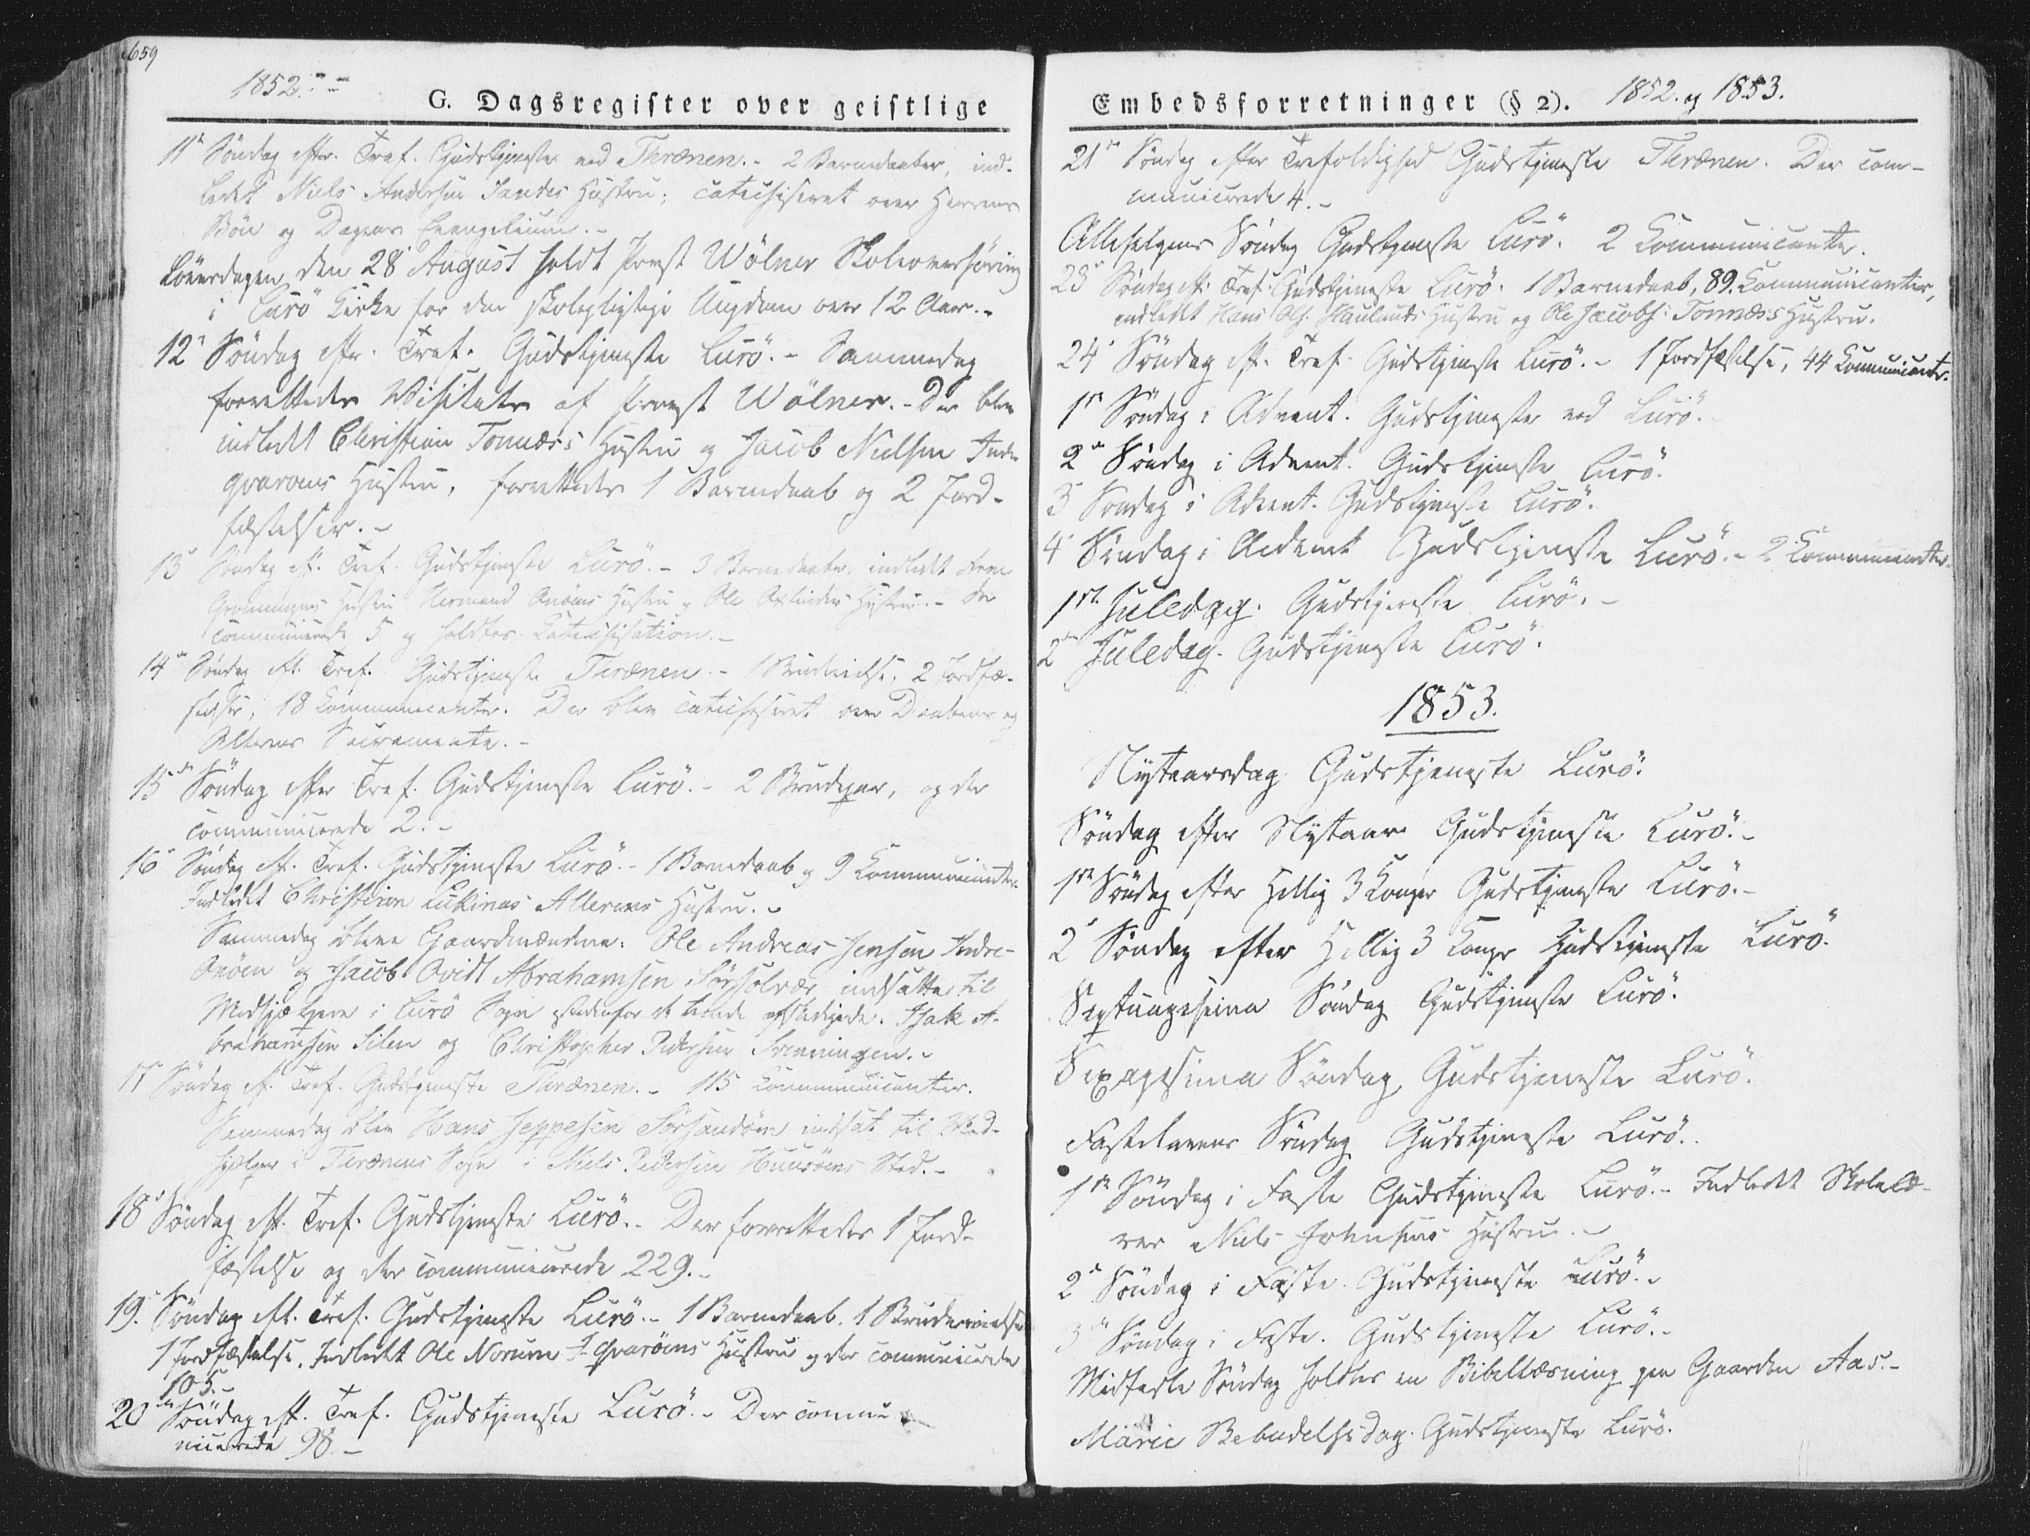 659
1852.
G. Dagsregister over geistlige
11te Søndag efter Tref. Gudstjeneste ved Thrænen. - 2 Barnedaaber, ind-
ledet Niels Andersen Sandes Hustru; catechiseret over Herrens
Bøn og Dagens Evangelium. -
Løverdagen den 28 August holdt Provst Wölner Skoleoverhøring
i Lurö Kirke for den skolepligtige Ungdom over 12 Aar. -
12te Søndag efter Tref. Gudstjeneste Lurö. - Sammedag
forrettedes Visitats af Provst Wölner. - Der blev
indledt Christian Tonnæs's Hustru og Jacob Nielsen Indre
qvaroens Hustru, forrettedes 1 Barnedaab og 2 Jord-
fæstelser. -
13 Søndag eft. Tref. Gudstjeneste Lurö. - 3 Barnedaaber, indledt
Hustru Hermand Onöens Hustru og Ole Hustru. - Der
communicerede 5 og holdtes Catechisation. -
14de Søndag eft. Tref. Gudstjeneste Thrænen. - 1 Brudevielse, 2 Jordfæ-
stelser, 18 Communicanter. Der blev catechiseret over Daabens og
Alterens Sacramente. -
15de Søndag efter Tref. Gudstjeneste Lurö. - 2 Brudepar, og der
communicerede 2. -
16 Søndag eft. Tref. Gudstjeneste Lurö. - 1 Barnedaab og 9 Communicanter.
Indledet Christian Lukinas Allerens Hustru. -
Sammedag bleve Gaardmændene: Ole Andreas Jensen Indre-
Onöen og Jacob Ovidt Abrahamsen Sörsolvær indsatte til
Medhjælpere i Lurö Sogn istedenfor de Isak A-
brahamsen Silen og Christopher Pedersen Svenningen. -
17de Søndag eft. Tref. Gudstjeneste Thrænen. - 115 Communicanter.
Sammedag blev Hans Jeppesen Sörsandöen indsat til Med-
hjælper i Thrænens Sogn i Niels Pedersen Huusöens Sted. -
18 Søndag eft. Tref. Gudstjeneste Lurö. - Der forrettedes 1 Jord-
fæstelse og der communicerede 229. -
19. Søndag eft. Tref. Gudstjeneste Lurö. - 1 Barnedaab. 1 Brudevielse
1 Jordfæstelse. Indledt Ole Norum I. qvaröens Hustru og der communicerede
105. -
20de Søndag eft. Tref. Gudstjeneste Lurö. - Der commu-
nicerede 98. -
Embedsforretninger (§ 2). 1852. og 1853.
21de Søndag efter Trefoldighed Gudstjeneste Thrænen. Der com-
municerede 4. -
Allehelgens Søndag Gudstjeneste Lurö. 2 Communicanter.
23de Søndag eft. Tref. Gudstjeneste Lurö. 1 Barnedaab, 89. Communicanter,
indledt Hans Ols. Haulands Hustru og Ole Jacobs. Tonnæss Hustru.
24de Søndag eft. Tref. Gudstjeneste Lurö. - 1 Jordfæstelse, 44 Communicanter.
1ste Søndag i Advent. Gudstjeneste ved Lurö.
2den Søndag i Advent. Gudstjeneste Lurö.
3 Søndag i Advent. Gudstjeneste Lurö.
4 Søndag i Advent Gudstjeneste Lurö. - 2 Communicanter.
1ste Juledag. Gudstjeneste Lurö. -
2den Juledag. Gudstjeneste Lurö.
1853.
Nytaarsdag Gudstjeneste Lurö.
Søndag efter Nytaar Gudstjeneste Lurö. -
1ste Søndag efter Hellig 3 Konger Gudstjeneste Lurö. -
2 Søndag efter Hellig 3 Konger Gudstjeneste Lurö.
Septuagesima Søndag Gudstjeneste Lurö.
Sexagesima Søndag Gudstjeneste Lurö.
Fastelavens Søndag Gudstjeneste Lurö.
1ste Søndag i Faste Gudstjeneste Lurö. - Indledt Skolelæ-
rer Niels Johnsens Hustru. -
2den Søndag i Faste. Gudstjeneste Lurö. -
3die Søndag i Faste. Gudstjeneste Lurö. -
Midfaste Søndag holdtes en Bibellæsning paa Gaarden Aas. -
Mariæ Bebudelsesdag. Gudstjeneste Lurö.